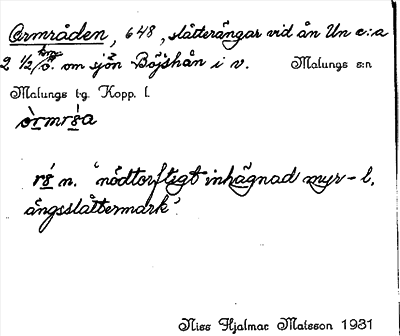 Ormråden, 648, slåtterängar vid ån Un c:a
2 1/2 km ö. om sjön Böjshån i v. Malungs s:n
Malungs tg. Kopp. l.
òrmrs̀a
rś n. 'nödtorftigt inhägnad myr- l.
ängsslåttermark'.
Niss Hjalmar Matsson 1931